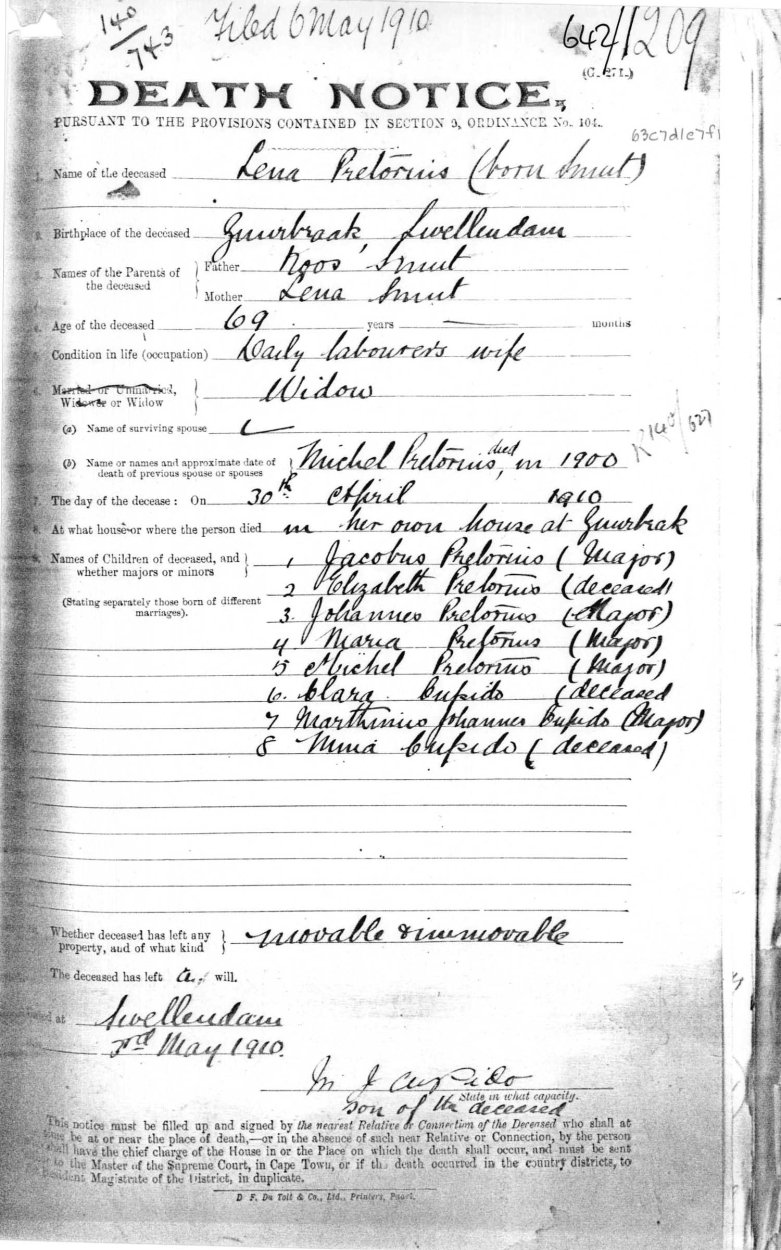 140
743
Filed 6 May 1910
642/1209
(G. 271.)
DEATH NOTICE,
PURSUANT TO THE PROVISIONS CONTAINED IN SECTION 9, ORDINANCE No. 104.
63c7d1c7f1
1. Name of the deceased Lena Pretorius (born Smut)
2. Birthplace of the deceased Zuurbraak, Swellendam
3. Names of the Parents of the deceased
Father Koos Smut
Mother Lena Smut
4. Age of the deceased 69 years — months
5. Condition in life (occupation) Daily labourer's wife
6. Married or Unmarried, Widower or Widow
Widow
(a) Name of surviving spouse
K140/627
(b) Name or names and approximate date of death of previous spouse or spouses
Michel Pretorius, died in 1900
7. The day of the decease: On 30th April 1910
8. At what house or where the person died in her own house at Zuurbrak
9. Names of Children of deceased, and whether majors or minors
(Stating separately those born of different marriages).
1 Jacobus Pretorius (Major)
2 Elizabeth Pretorius (deceased)
3. Johannes Pretorius (Major)
4 Maria Pretorius (Major)
5 Michel Pretorius (Major)
6. Clara Cupido (deceased
7 Marthinus Johannes Cupido (Major)
8 Mina Cupido (deceased)
10. Whether deceased has left any property, and of what kind
movable & immovable
The deceased has left a will.
at Swellendam
3rd May 1910.
M J Cupido
State in what capacity.
son of the deceased
This notice must be filled up and signed by the nearest Relative or Connection of the Deceased who shall at
be at or near the place of death,—or in the absence of such near Relative or Connection, by the person
shall have the chief charge of the House in or the Place on which the death shall occur, and must be sent
to the Master of the Supreme Court, in Cape Town, or if the death occurred in the country districts, to
Resident Magistrate of the District, in duplicate.
D. F. Du Toit & Co., Ltd., Printers, Paarl.